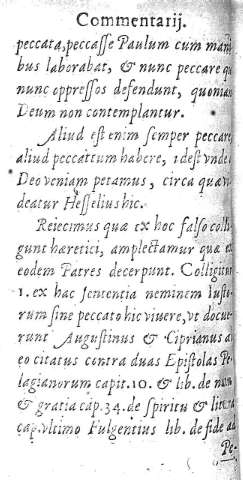 Commentarij.
peccata, peccasse Paulum cum mani
bus laborabat, & nunc peccare q
nunc oppressos defendunt, quonian
Deum non contemplantur.
Aliud est enim semper peccare
aliud peccatum habere, idest unde
Deo veniam petamus, circa quæ vi
deatur Hesselius hic.
Reiecimus quæ ex hoc falso colli
gunt hæretici, amplectamur quæ ex
eodem Patres decerpunt. Colligitur
1. ex hac sententia neminem iusto
rum sine peccato hic vivere, ut docue
runt Augustinus & Ciprianus a
eo citatus contra duas Epistolas Pe
lagianorum capit. 10. & lib. de natu
& gratia cap. 34. de Spiritu & litera
cap. vltimo Fulgentius lib. de fide ad
Pe-